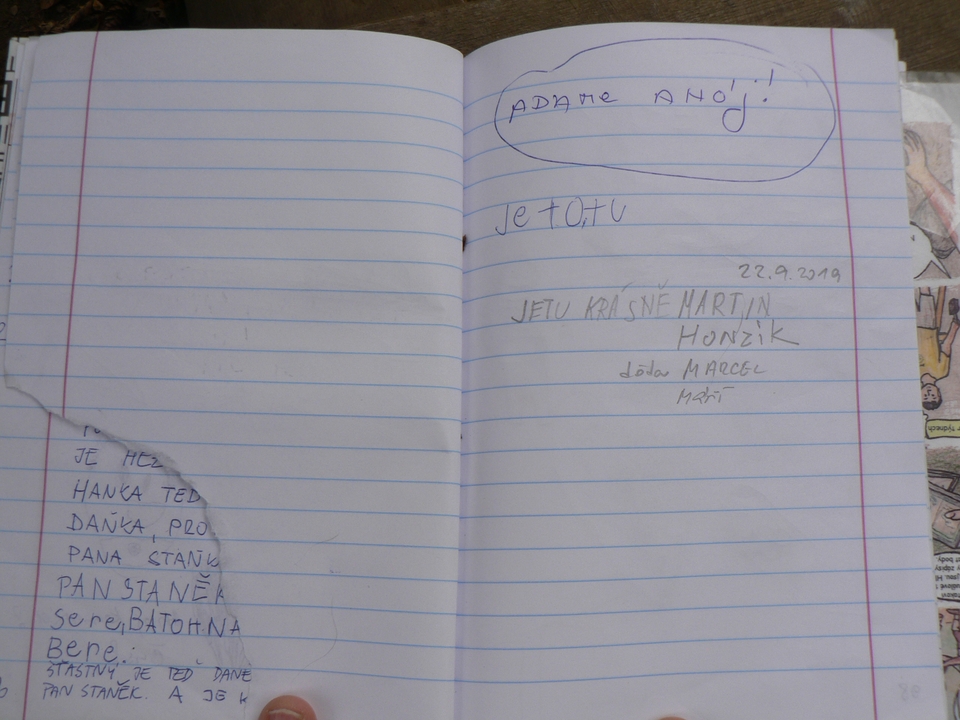 JE HEZ
HANKA TED
DAŇKA, PRO
PANA STAŇK
PAN STANĚK
sere, BATOH NA
Bere.
ŠŤASTNÝ JE TEĎ DANE
PAN STANĚK. A JE K
ADAME AHOJ!
Je to, tu
22.9.2019
JE TU KRÁSNĚ MARTIN
HONZÍK
děda MARCEL